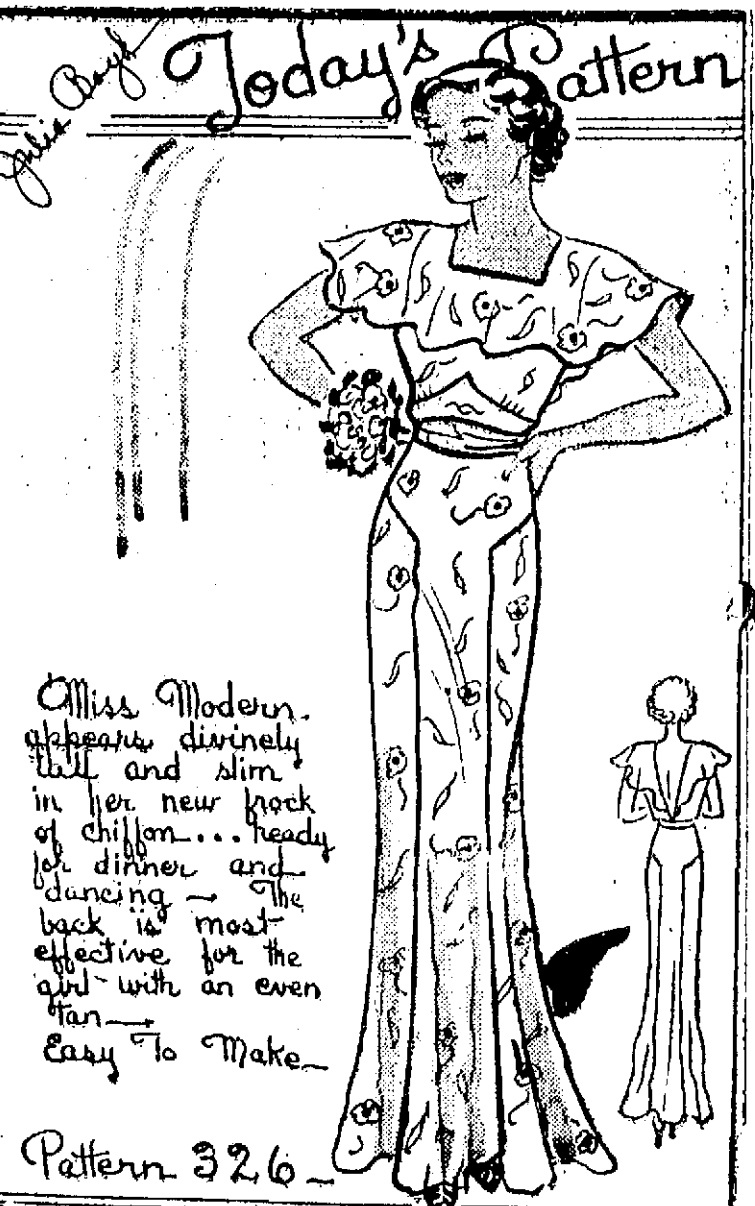 Julia Boyd
Today's Pattern
Miss Modern.
appears divinely
tall and slim
in her new frock
of chiffon... ready
for dinner and
dancing — The
back is most
effective for the
girl with an even
tan —
Easy To Make —
Pattern 326 —